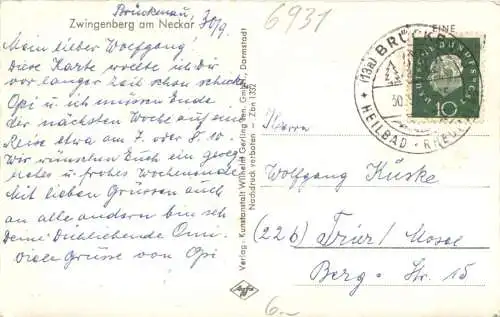 Brückenau, 30/9.
6931
Zwingenberg am Neckar
Mein lieber Wolfgang,
Diese Karte wollte ich dir
vor langer Zeit schon schicken
Opi u. ich müssen Ende
der nächsten Woche auf eine
Reise etwa am 7. oder 8. 10.
Wir wünschen Euch ein
u. frohes Wochenende
Mit lieben Grüssen auch
an alle andern bin ich
Deine Dichliebende Omi
viele Grüsse von Opi
Verlag: Kunstanstalt Wilhelm Gerling jun. GmbH., Darmstadt
Nachdruck verboten - Zbn 1332
Agfa
EINE
(13a) BRÜCKE
30.
HEILBAD · RHEU
DEUTSCHE BUNDESPOST
10
Herrn
Wolfgang Küske
(22b) Trier/Mosel
Berg-Str. 15
6.-